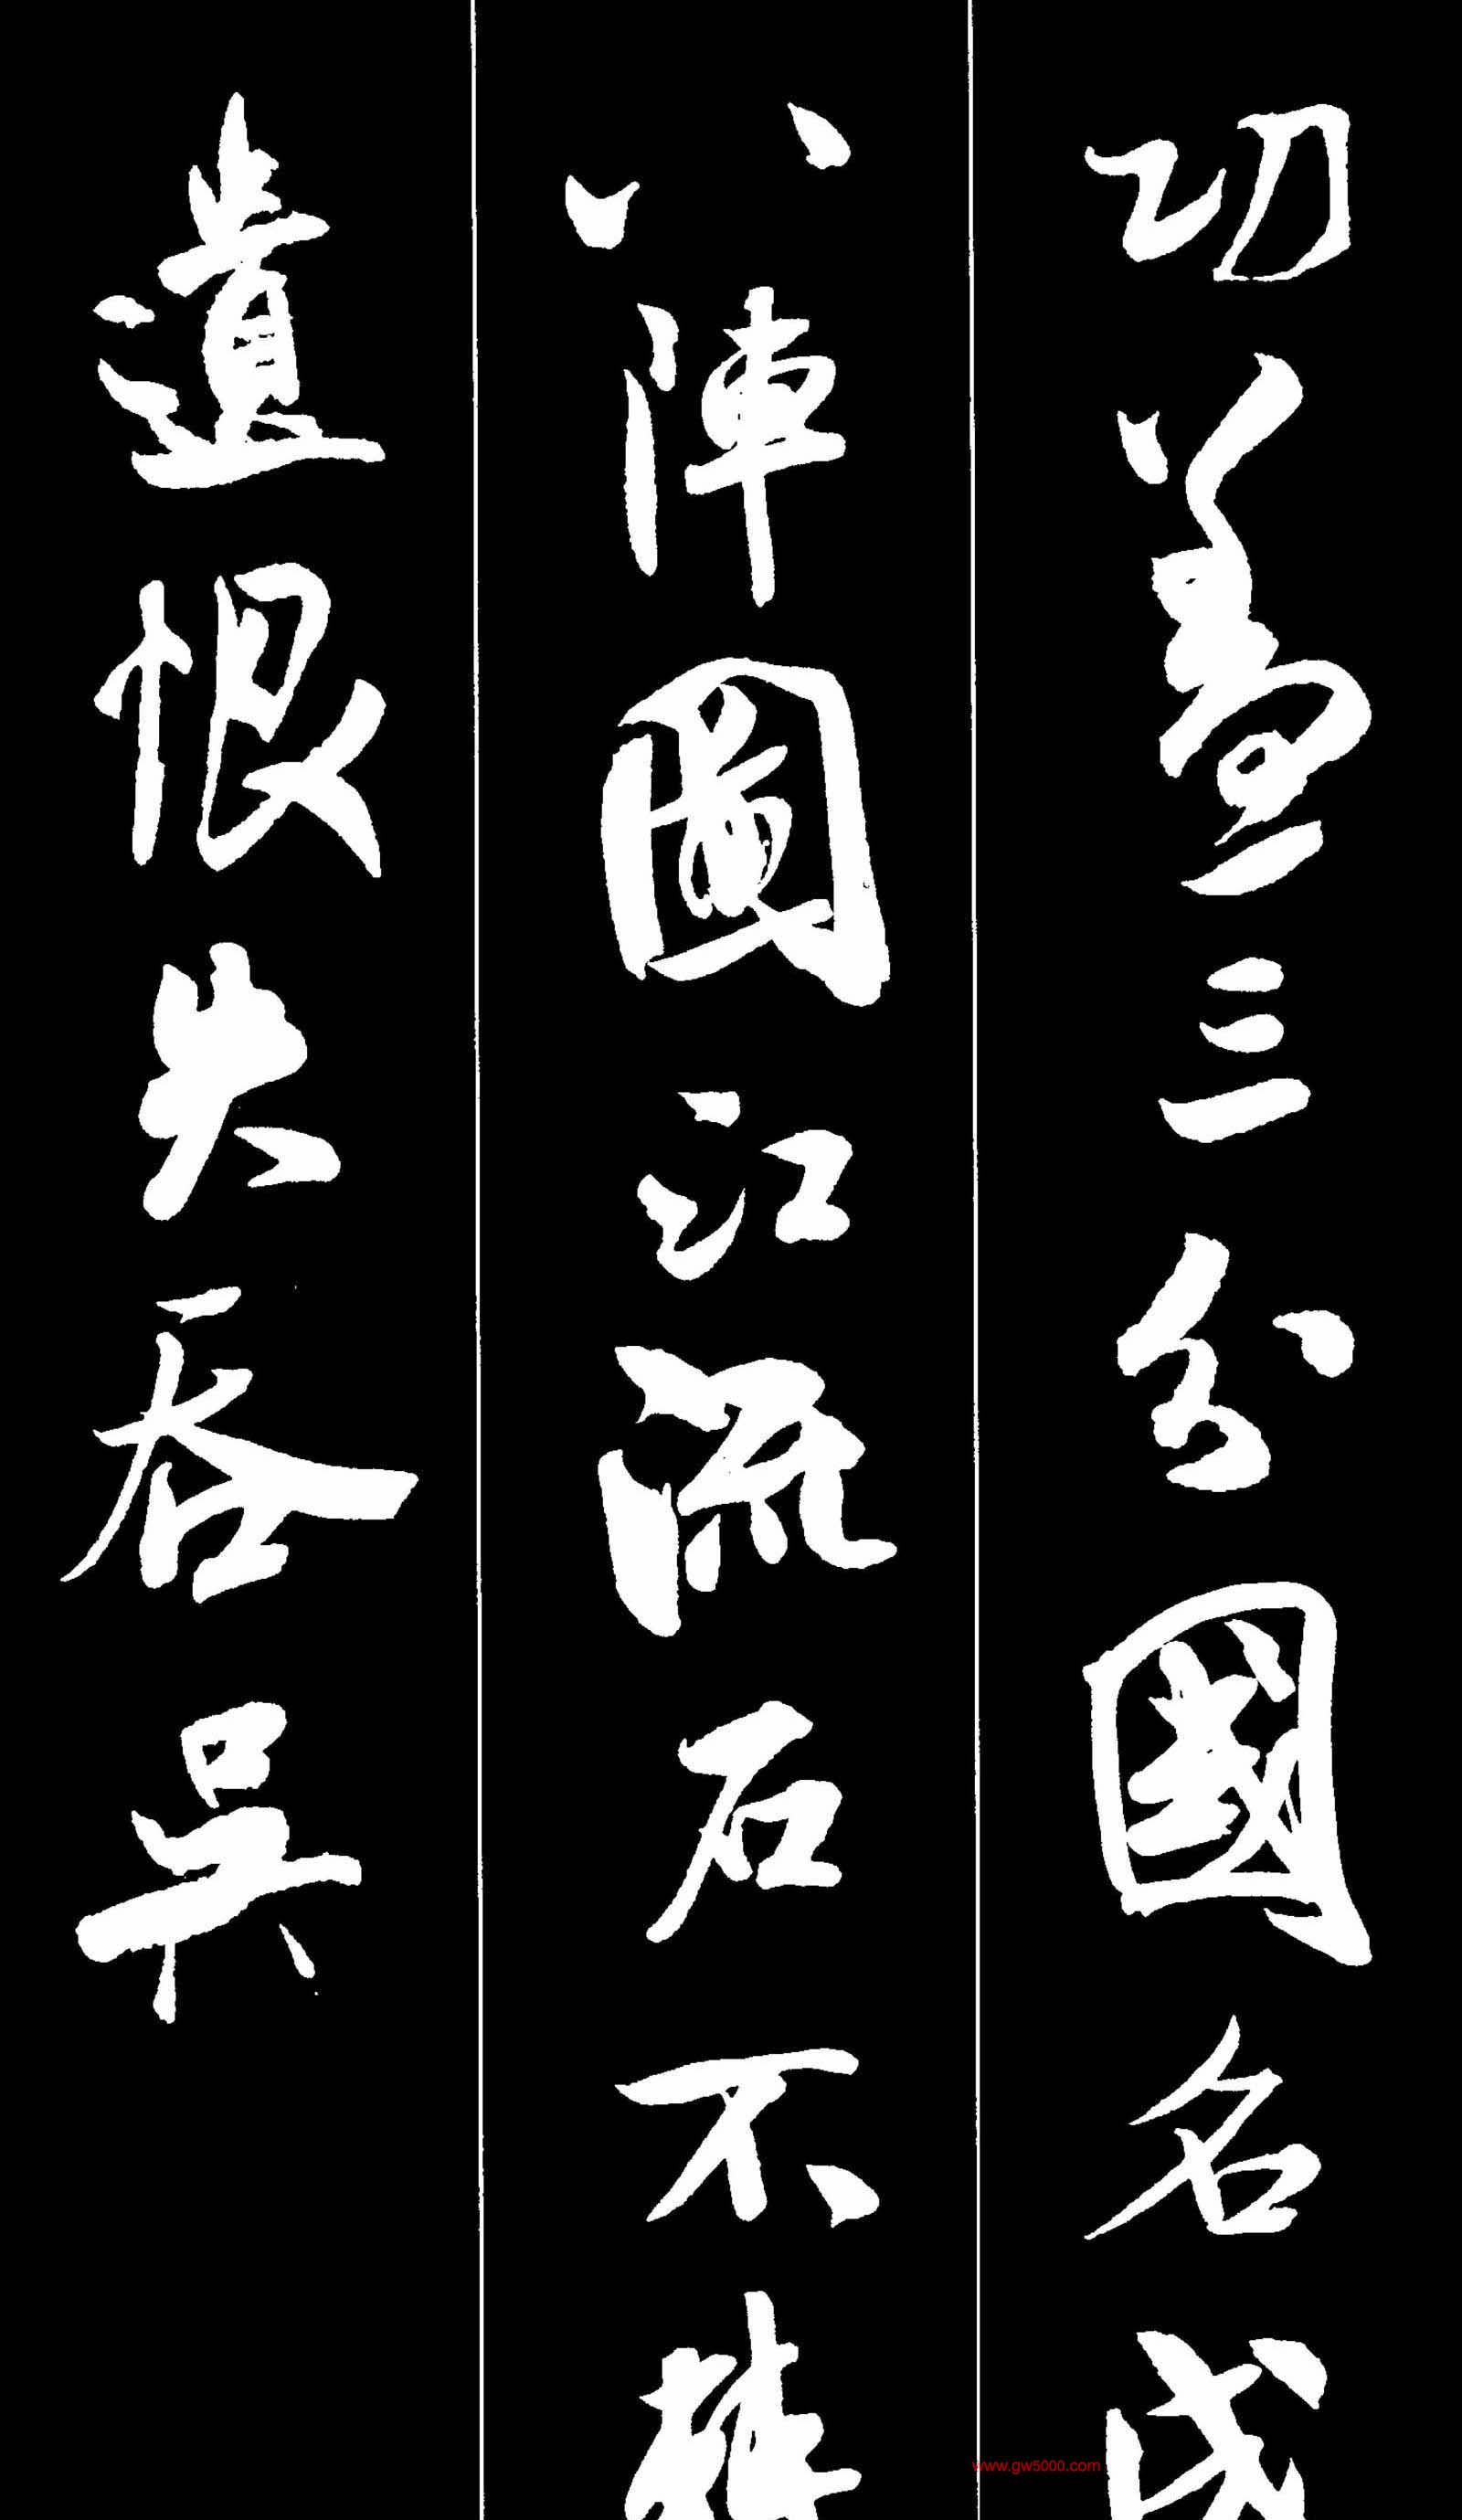 功蓋三分國名成
八陣圖江流石不轉
遺恨失吞吳
www.gw5000.com